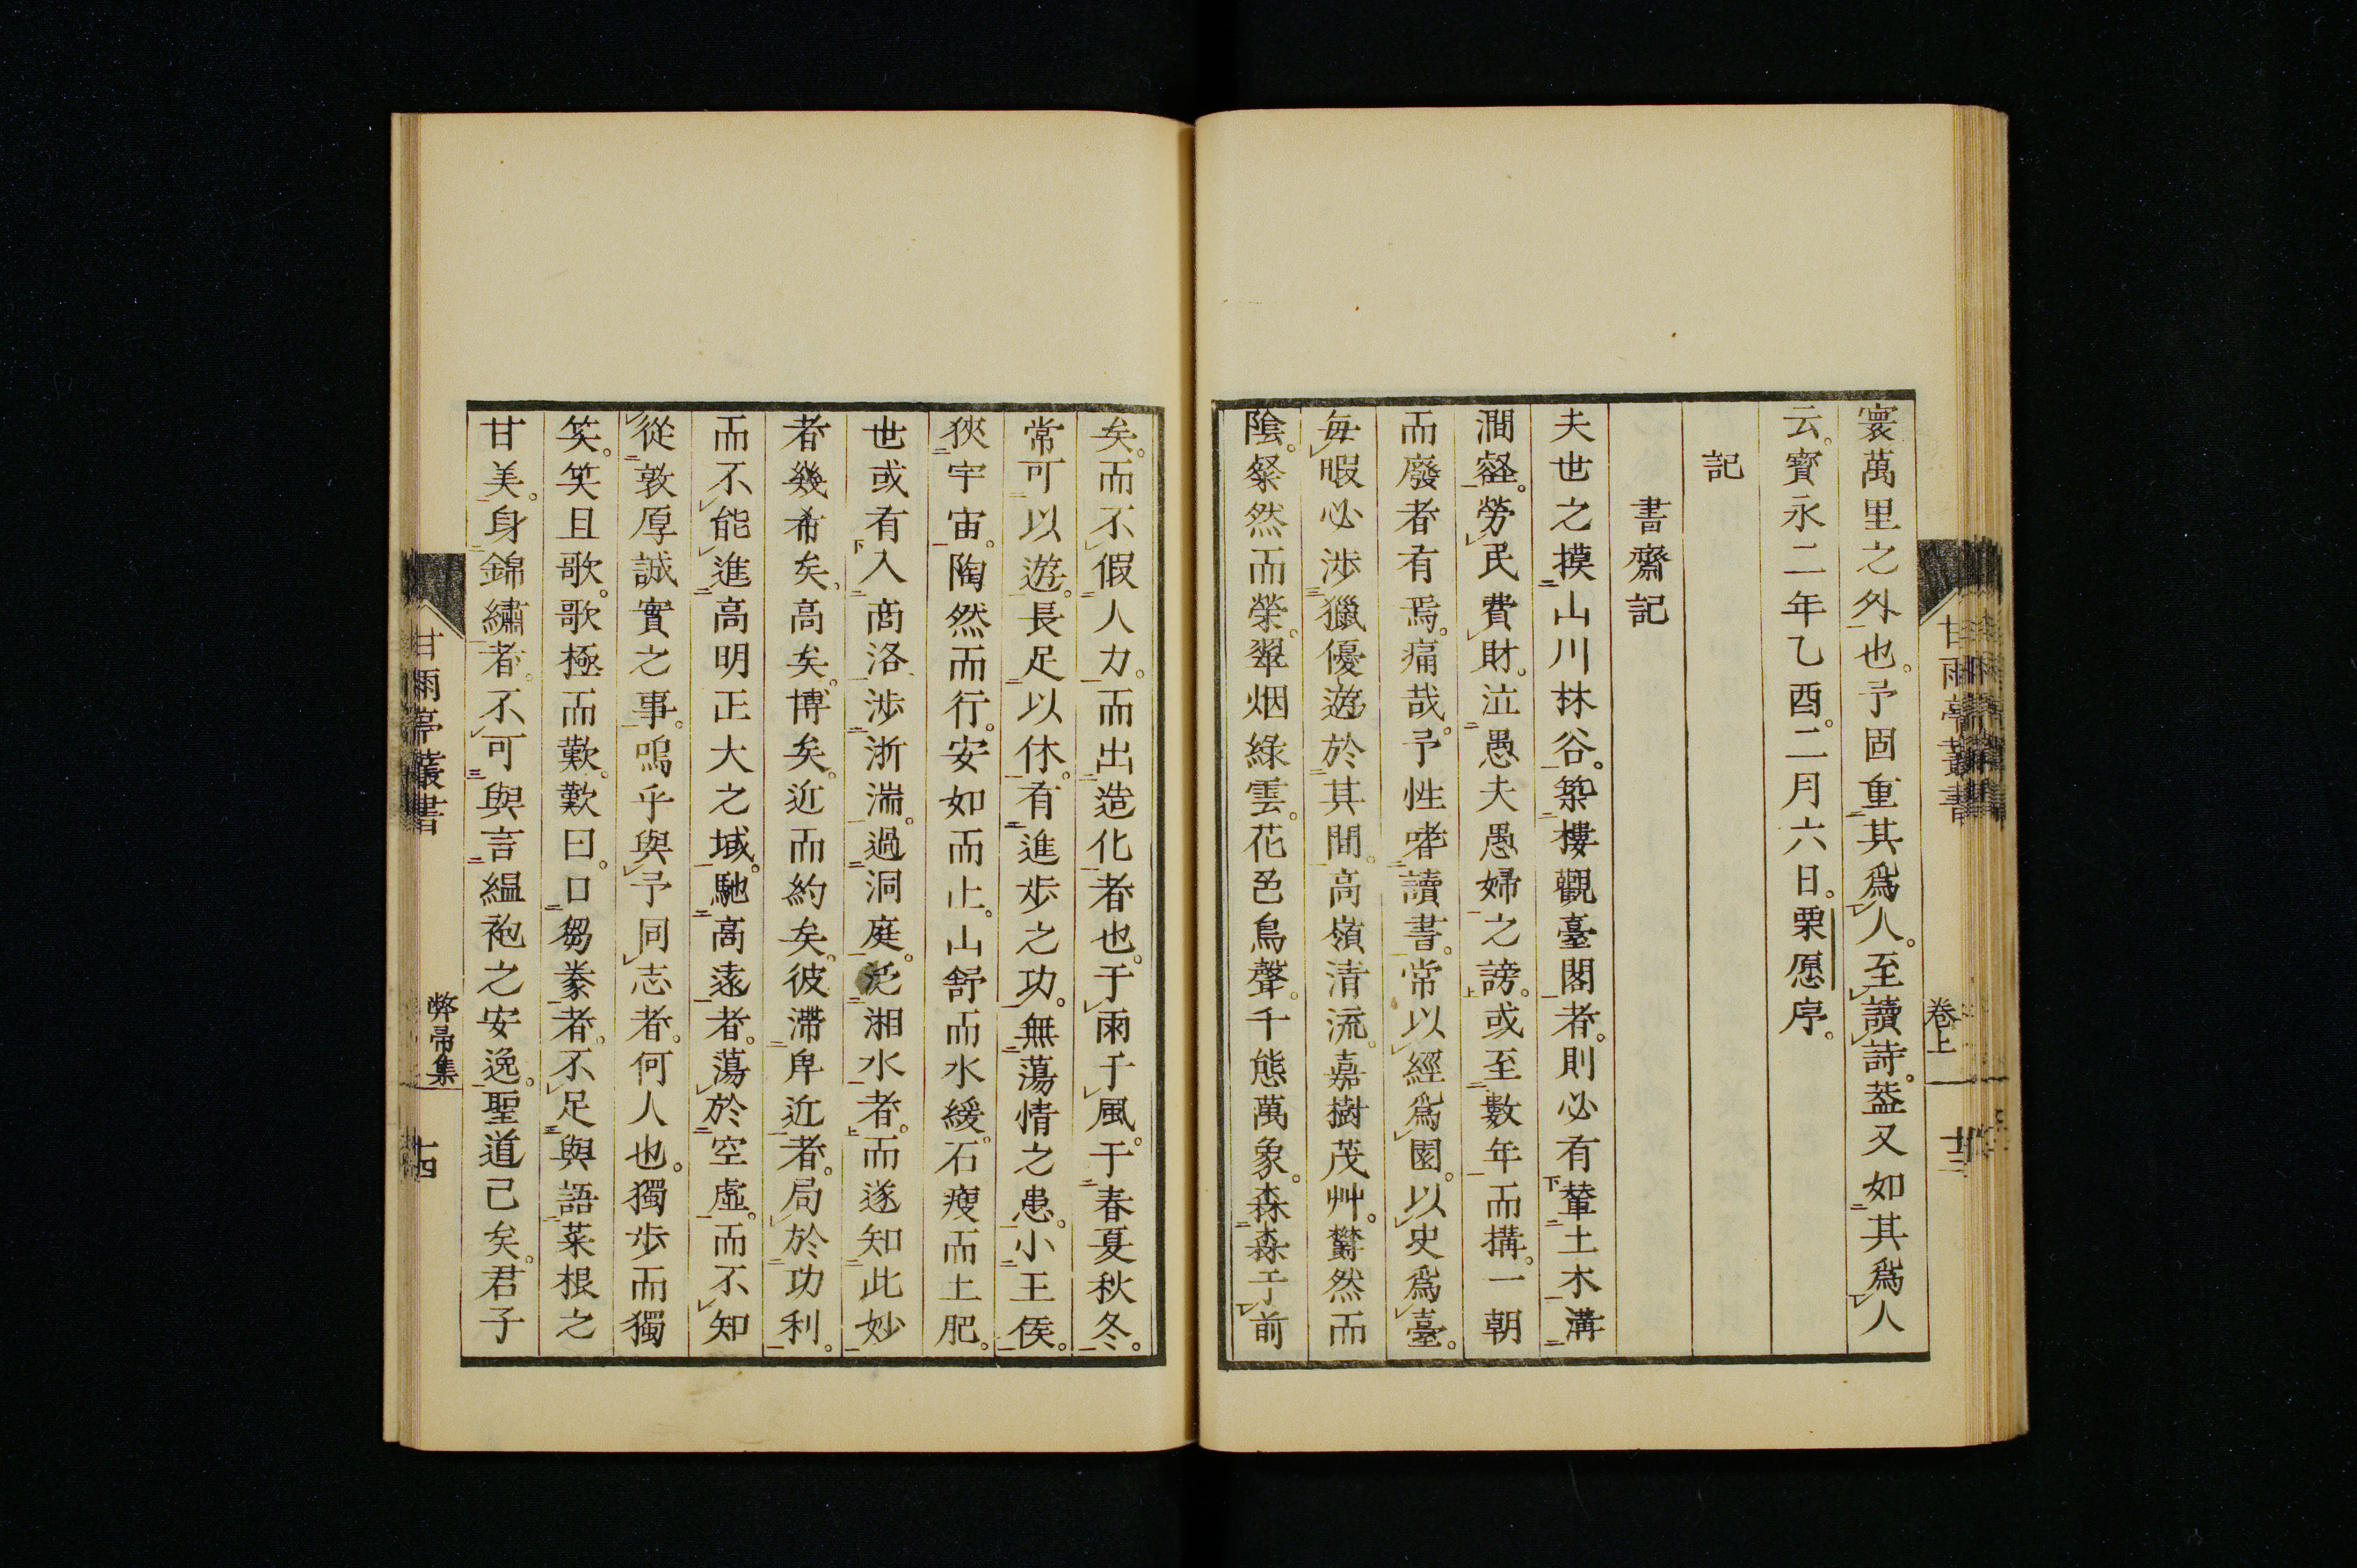 寰萬里之外也。予固重其爲人。至讀詩。葢又如其爲人
云。寳永二年乙酉。二月六日。栗愿序。
記
書齋記
夫世之摸山川林谷。築樓觀臺閣者。則必有輦土木溝
澗壑。勞民費財。泣愚夫愚婦之謗。或至數年而搆。一朝
而廢者有焉。痛哉。予性嗜讀書。常以經爲園。以史爲臺。
每暇必涉獵優遊於其間。高嶺清流。嘉樹茂艸。欝然而
陰。粲然而榮。翠烟綠雲。花邑鳥聲。千態萬象。森森于前
矣。而不假人力。而出造化者也。于雨于風。于春夏秋冬。
常可以遊。長足以休。有進步之功。無蕩情之患。小王侯。
狹宇宙。陶然而行。安如而止。山舒而水緩。石瘦而土肥。
世或有入商洛涉浙湍。過洞庭。泛湘水者。而遂知此妙
者幾希矣、高矣。博矣。近而約矣。彼滯卑近者。局於功利。
而不能進高明正大之域。馳高遠者。蕩於空虛。而不知
從敦厚誠實之事。嗚乎與予同志者。何人也。獨步而獨
笑。笑且歌。歌極而歎。歎曰。口芻豢者。不足與語菜根之
甘美。身錦繡者。不可與言縕袍之安逸。聖道已矣。君子
甘雨亭叢書
卷上
甘雨亭叢書
弊帚集
十四